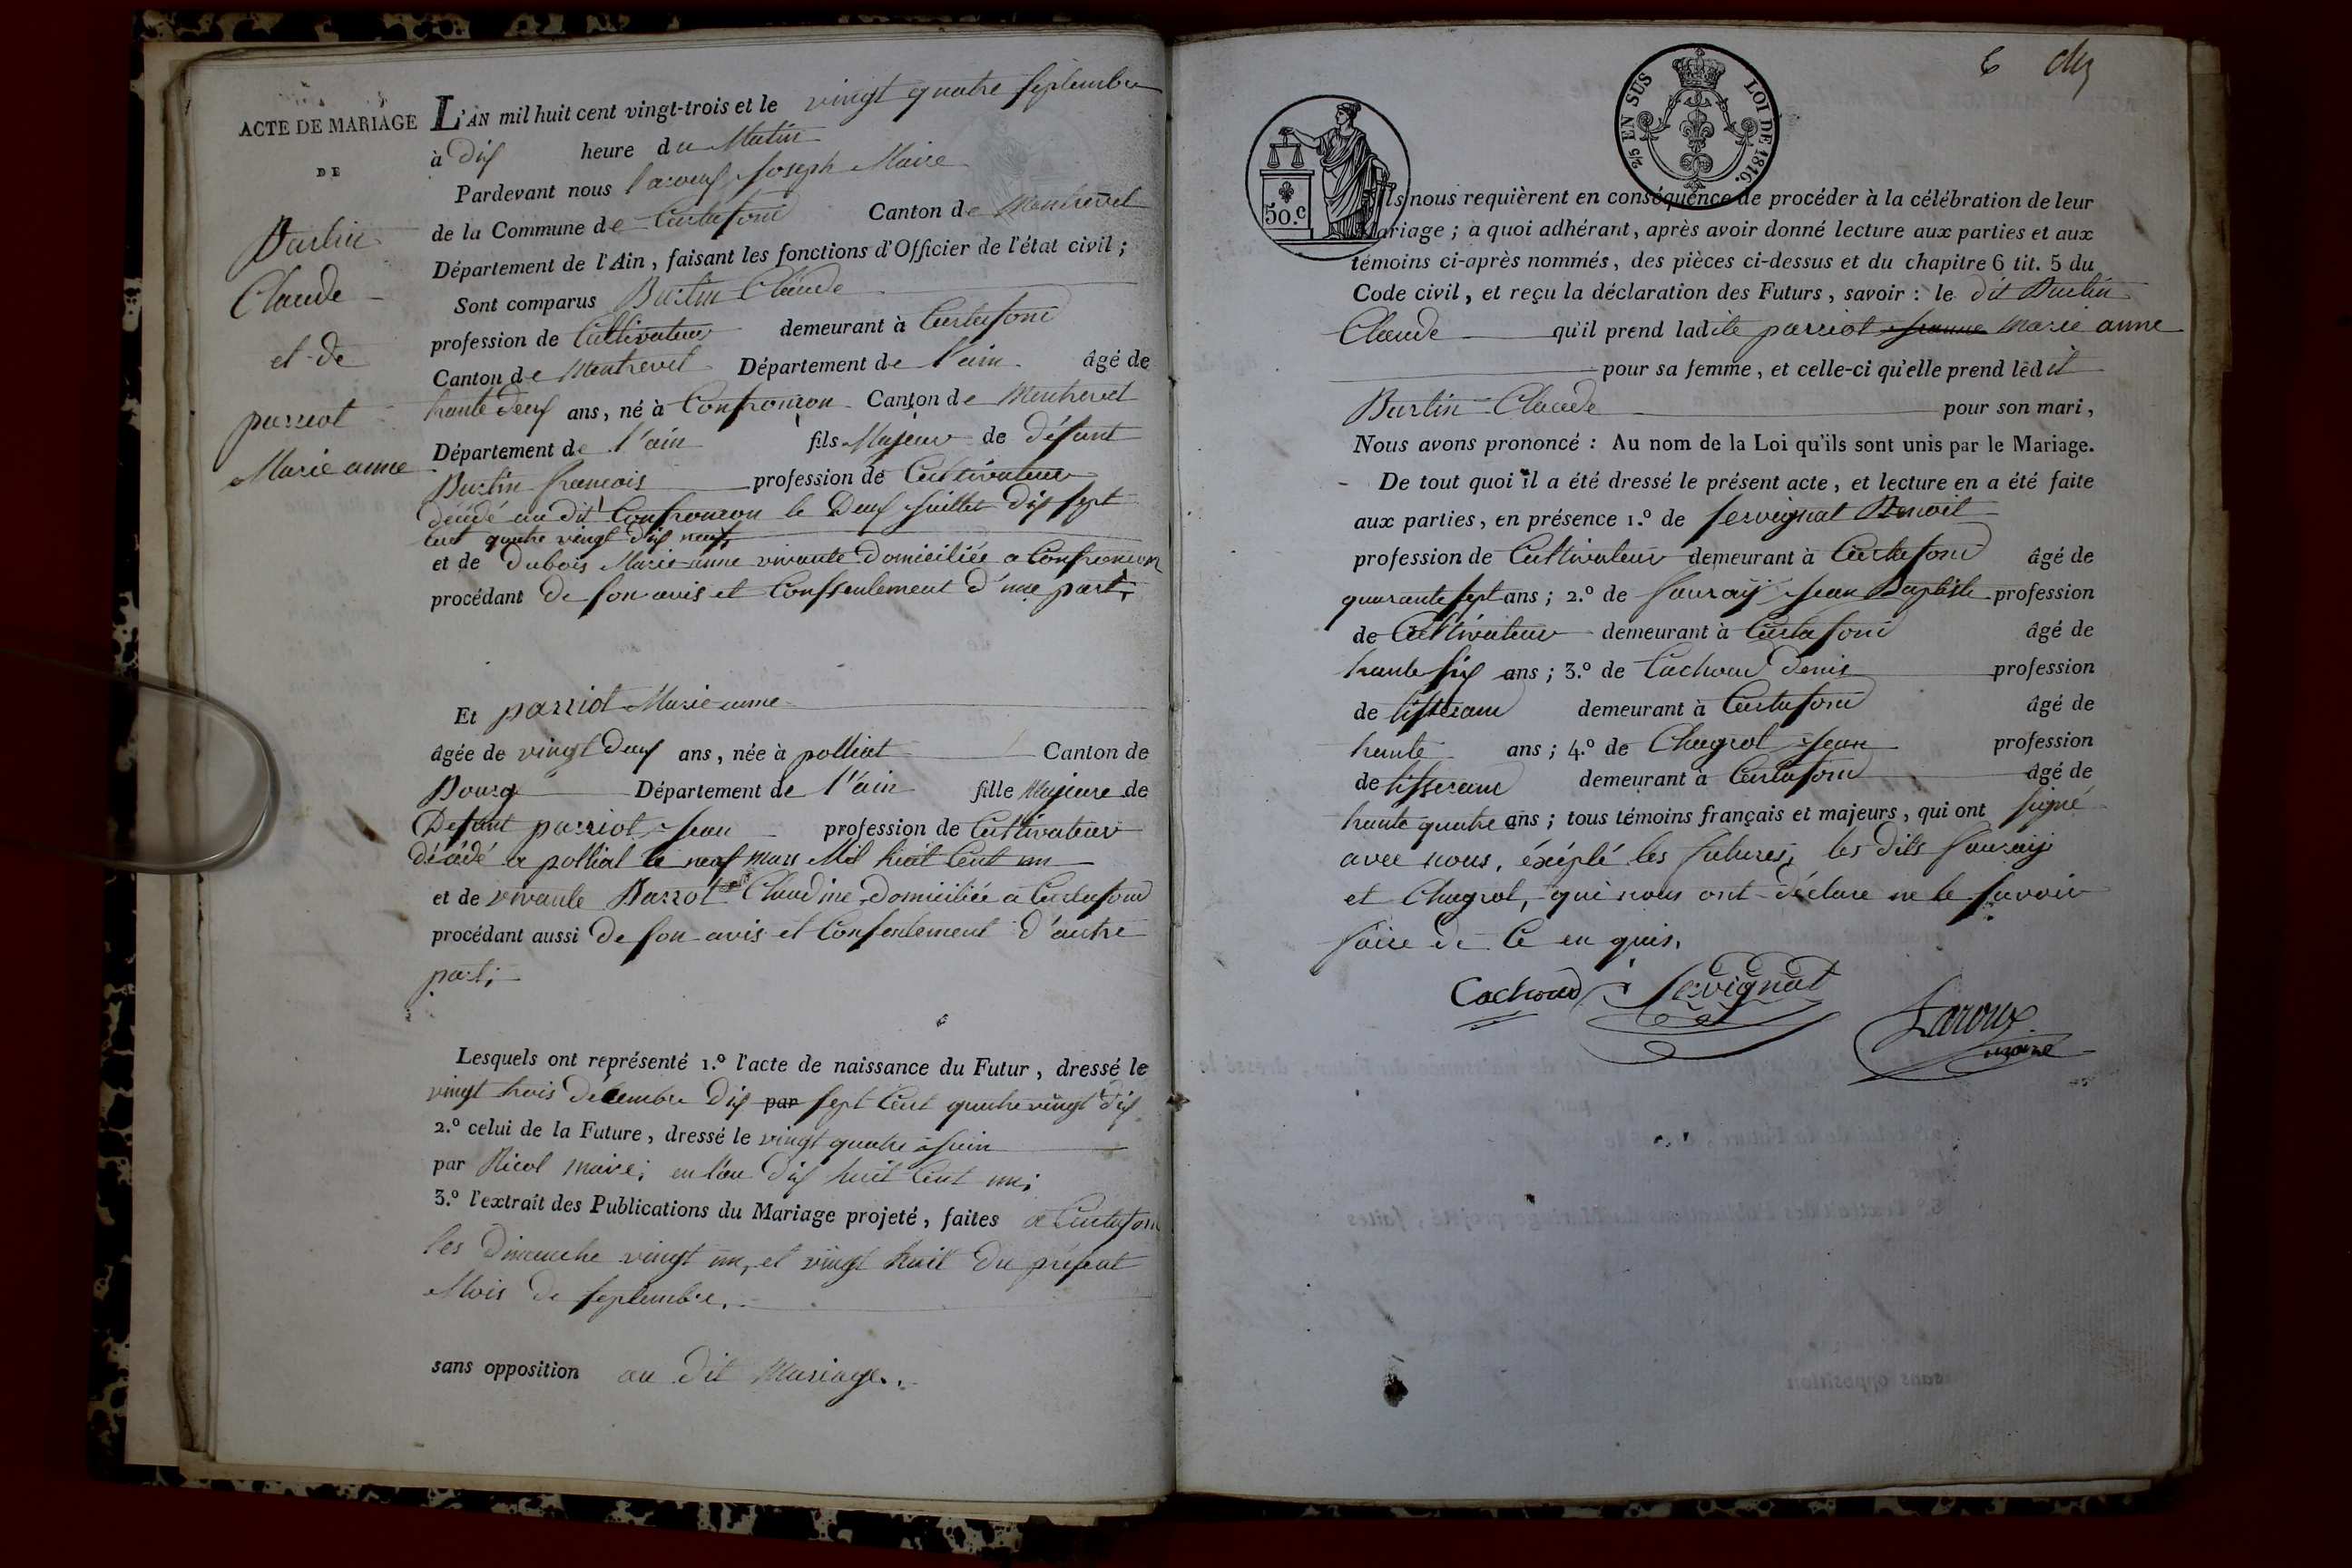 ACTE DE MARIAGE
DE
Burtin
Claude
et de
parriot
Marie anne
L'AN mil huit cent vingt-trois et le vingt quatre septembre
à dix heure du Matin
Pardevant nous Laroux Joseph Maire
de la Commune de Curtafond Canton de Montrevel
Département de l'Ain, faisant les fonctions d'Officier de l'état civil;
Sont comparus Burtin Claude
profession de Cultivateur demeurant à Curtafond
Canton de Montrevel Département de l'ain âgé de
trante deux ans, né à Confrançon Canton de Montrevel
Département de l'ain fils Majeur de défunt
Burtin francois profession de Cultivateur
décédé au dit Confrançon le Deux Juillet dix sept
cent quatre vingt dix neuf,
et de Dubois Marie anne vivante Domiciliée a Confrançon
procédant de son avis et Conssentement d'une part,
Et parriot Marie anne
âgée de vingt deux ans, née à polliat Canton de
Bourg Département de l'ain fille Majeure de
Défunt parriot Jean profession de Cultivateur
décédé a polliat le neuf mars Mil huit Cent un
et de vivante Barrot Claudine Domiciliée a Curtafond
procédant aussi de son avis et Consentement d'autre
part;
Lesquels ont représenté 1.º l'acte de naissance du Futur, dressé le
vingt trois décembre dix par sept Cent quatre vingt dix
2.º celui de la Future, dressé le vingt quatre Juin
par Nicol maire; en l'an dix huit Cent un;
3.º l'extrait des Publications du Mariage projeté, faites a Curtafond
les Dimanche vingt un, et vingt huit du présent
Mois de septembre.
sans opposition au dit Mariage.
6
50.c
2/5 EN SUS LOI DE 1816.
Ils nous requièrent en conséquence de procéder à la célébration de leur
mariage; à quoi adhérant, après avoir donné lecture aux parties et aux
témoins ci-après nommés, des pièces ci-dessus et du chapitre 6 tit. 5 du
Code civil, et reçu la déclaration des Futurs, savoir: le dit Burtin
Claude qu'il prend ladite parriot Jeanne Marie anne
pour sa femme, et celle-ci qu'elle prend lédit
Burtin Claude pour son mari,
Nous avons prononcé: Au nom de la Loi qu'ils sont unis par le Mariage.
De tout quoi il a été dressé le présent acte, et lecture en a été faite
aux parties, en présence 1.º de Servignat Benoit
profession de Cultivateur demeurant à Curtafond âgé de
quarante sept ans; 2.º de Jean Baptiste profession
de Cultivateur demeurant à Curtafond âgé de
trante six ans; 3.º de Cachoud Denis profession
de tisserand demeurant à Curtafond âgé de
trante ans; 4.º de Chagrot Jean profession
de tisserand demeurant à Curtafond âgé de
trante quatre ans; tous témoins français et majeurs, qui ont signé
avec nous, éxépté les futures, les dits
et Chagrot, qui nous ont déclare ne le savoir
faire de Ce en quis.
Cachoud Servignat
Laroux
maire